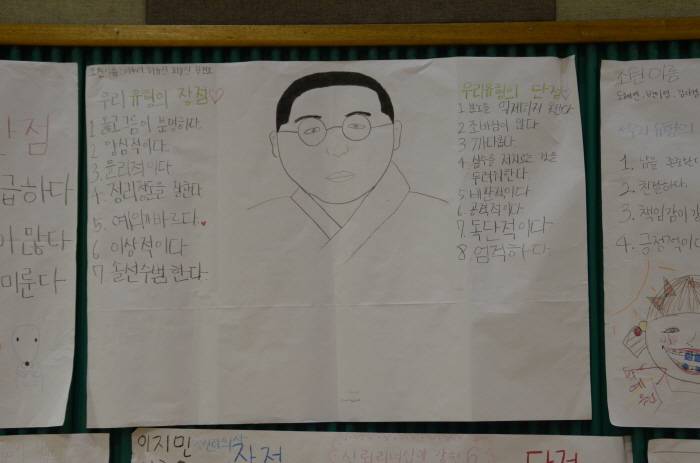 우리 유형의 장점♡
1. 옳고 그름이 분명하다.
2. 양심적이다.
3. 윤리적이다.
4. 정리정돈을 잘한다
5. 예의바르다.
6 이상적이다
7 솔선수범한다.
우리유형의 단점
1. 분노를 억제하지 못한다
2 조바심이 많다
3 까다롭다
4 실수를 저지르는 것을
두려워한다
5. 비판적이다
6. 공격적이다
7. 독단적이다
8. 엄격하다.
점
급하다
많다
미룬다
조원 이름
1.
2. 친절하다.
3. 책임감이
4. 긍정적이다
이지민
장점
단점